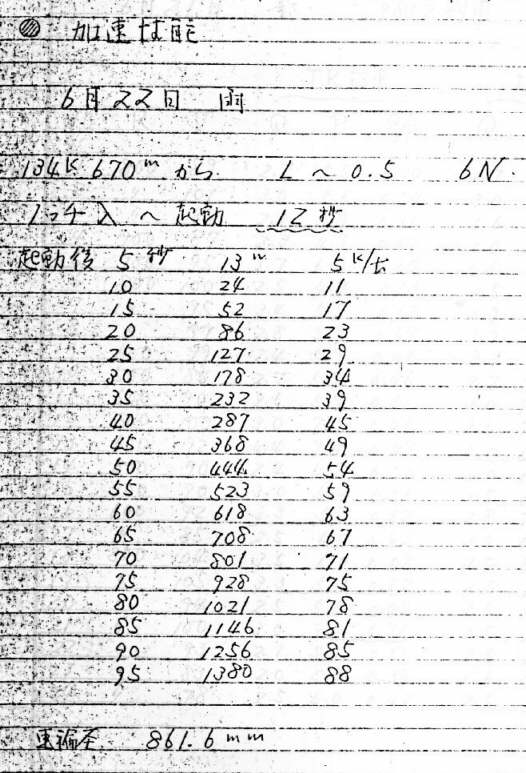 加速性能
6月22日 雨
134K 670m から L~0.5 6N
1ノッチ入~起動 12秒
起動後 5秒 13m 5K/h
10 24 11
15 52 17
20 86 23
25 127 29
30 178 34
35 232 39
40 287 45
45 368 49
50 444 54
55 523 59
60 618 63
65 708 67
70 801 71
75 928 75
80 1021 78
85 1146 81
90 1256 85
95 1380 88
車輪径 861.6mm